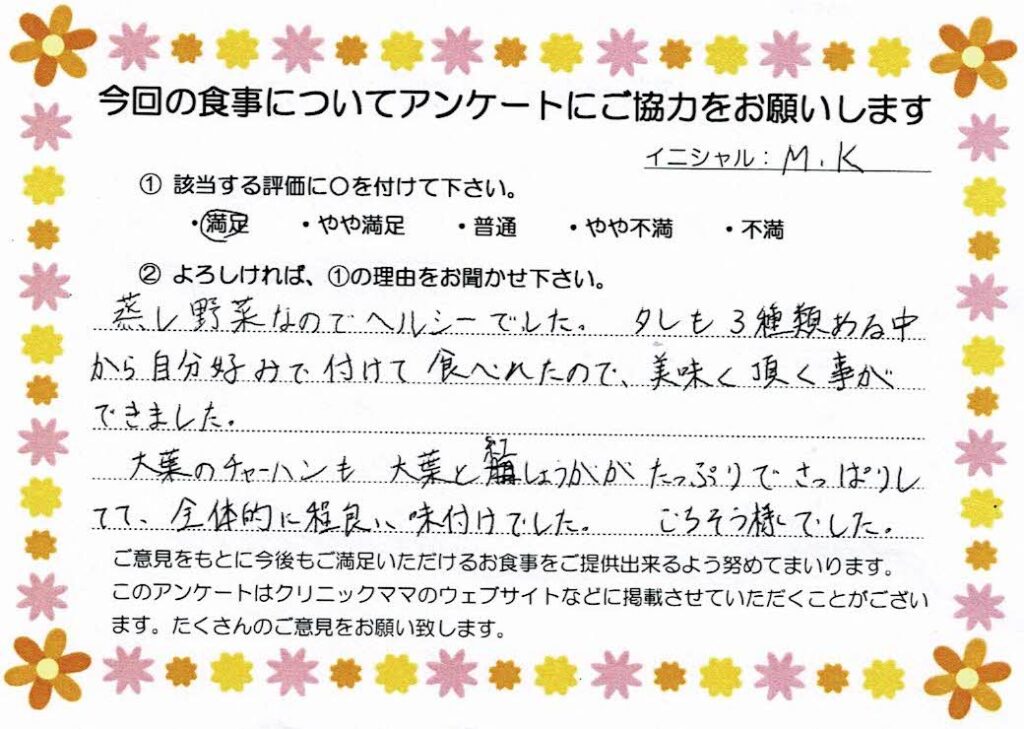 今回の食事についてアンケートにご協力をお願いします
イニシャル：M.K
① 該当する評価に○を付けて下さい。
・満足 ・やや満足 ・普通 ・やや不満 ・不満
② よろしければ、①の理由をお聞かせ下さい。
蒸し野菜なのでヘルシーでした。 タレも3種類ある中
から自分好みで付けて食べれたので、美味く頂く事が
できました。
大葉のチャーハンも 大葉と紅しょうがが たっぷりでさっぱりし
てて、全体的に程良い味付けでした。 ごちそう様でした。
ご意見をもとに今後もご満足いただけるお食事をご提供出来るよう努めてまいります。
このアンケートはクリニックママのウェブサイトなどに掲載させていただくことがござい
ます。たくさんのご意見をお願い致します。